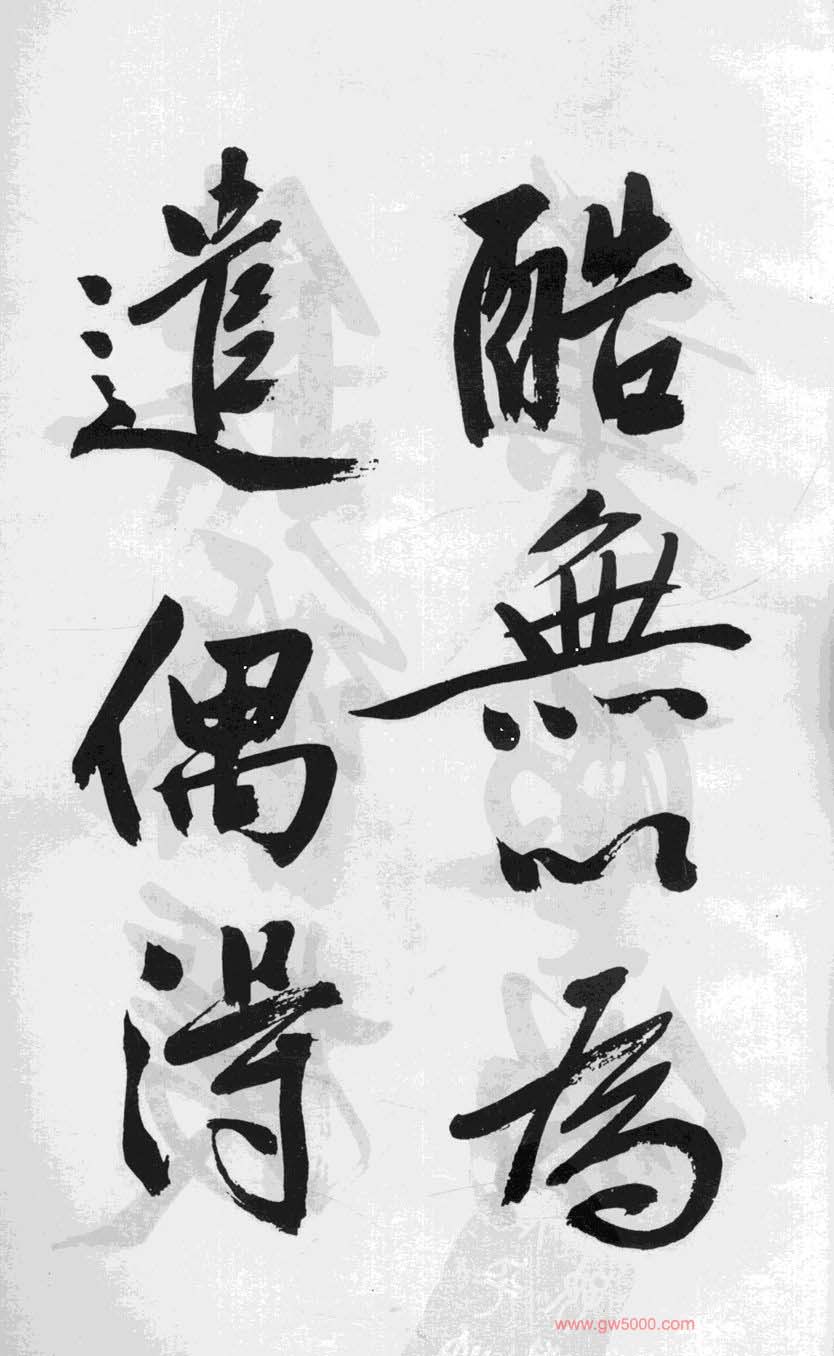 酷無以為
遣偶得
www.gw5000.com